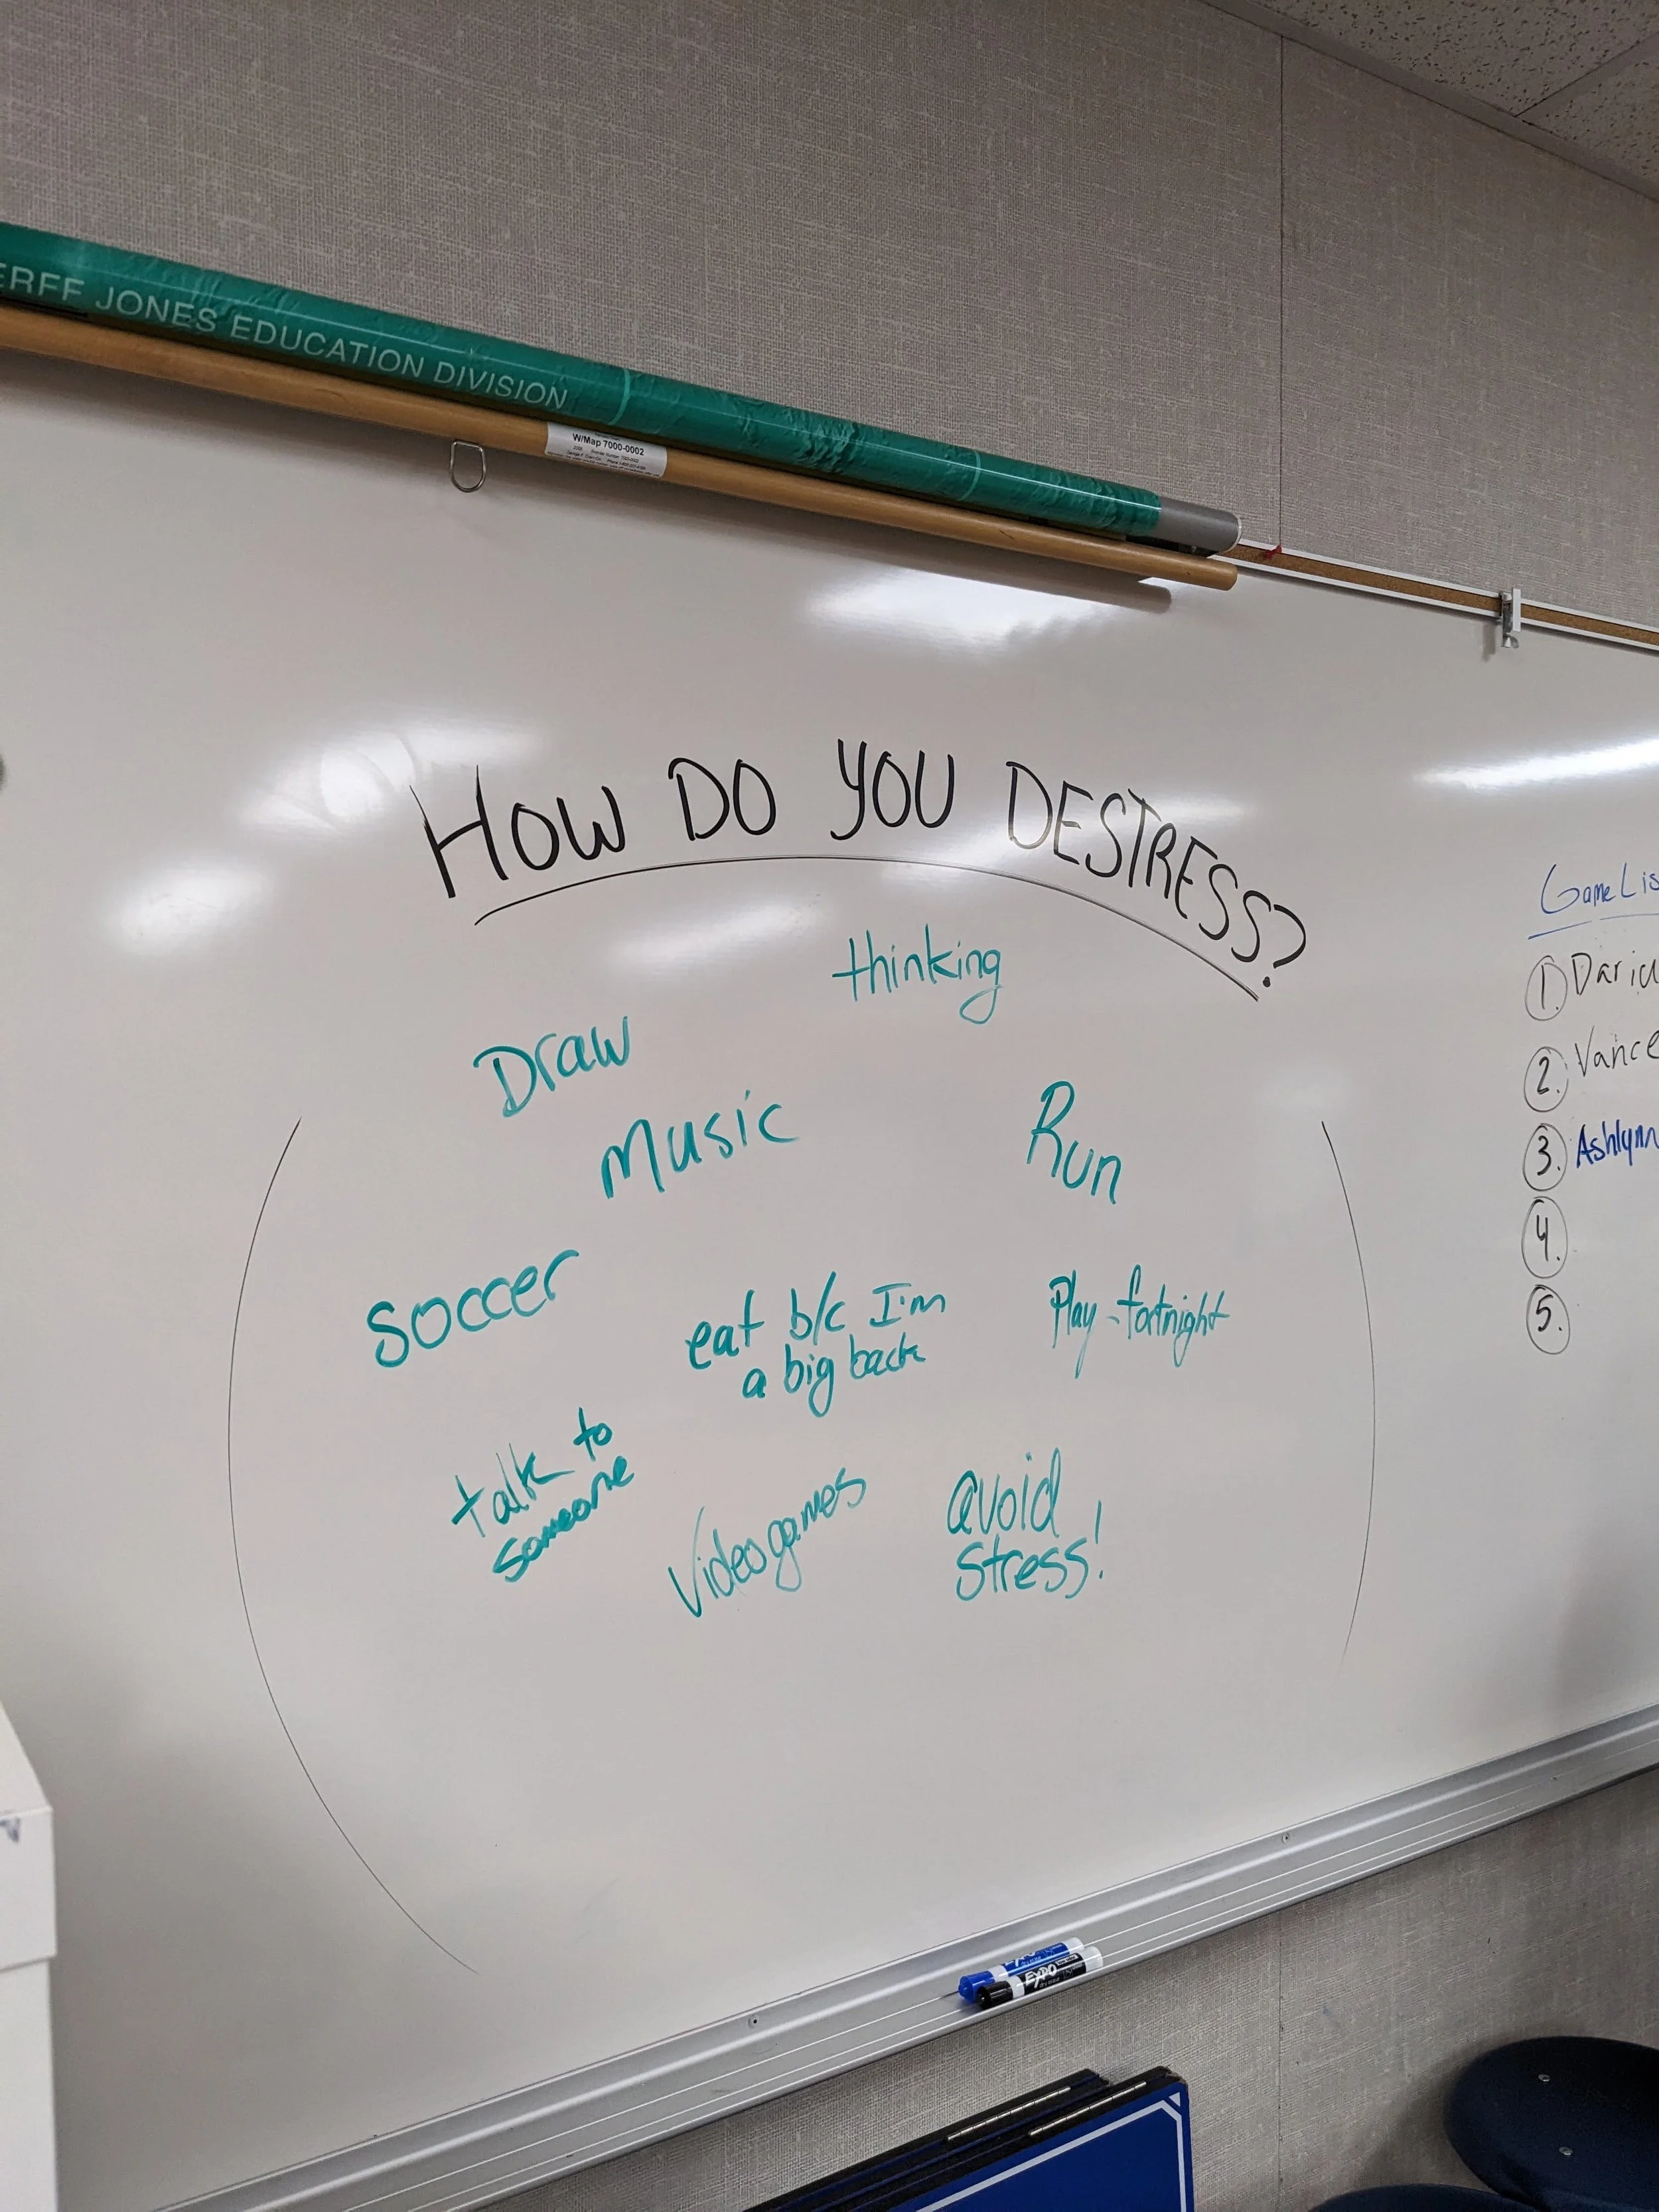 ERFF JONES EDUCATION DIVISION
W/Map 7000-0002
HOW DO YOU DESTRESS?
thinking
Draw
Music
Run
Soccer
eat b/c I'm
a big back
Play-fortnight
talk to
someone
Videogames
avoid
stress!
Game Lis
1. Dariu
2. Vance
3. Ashlynn
4.
5.
EXPO
EXPO